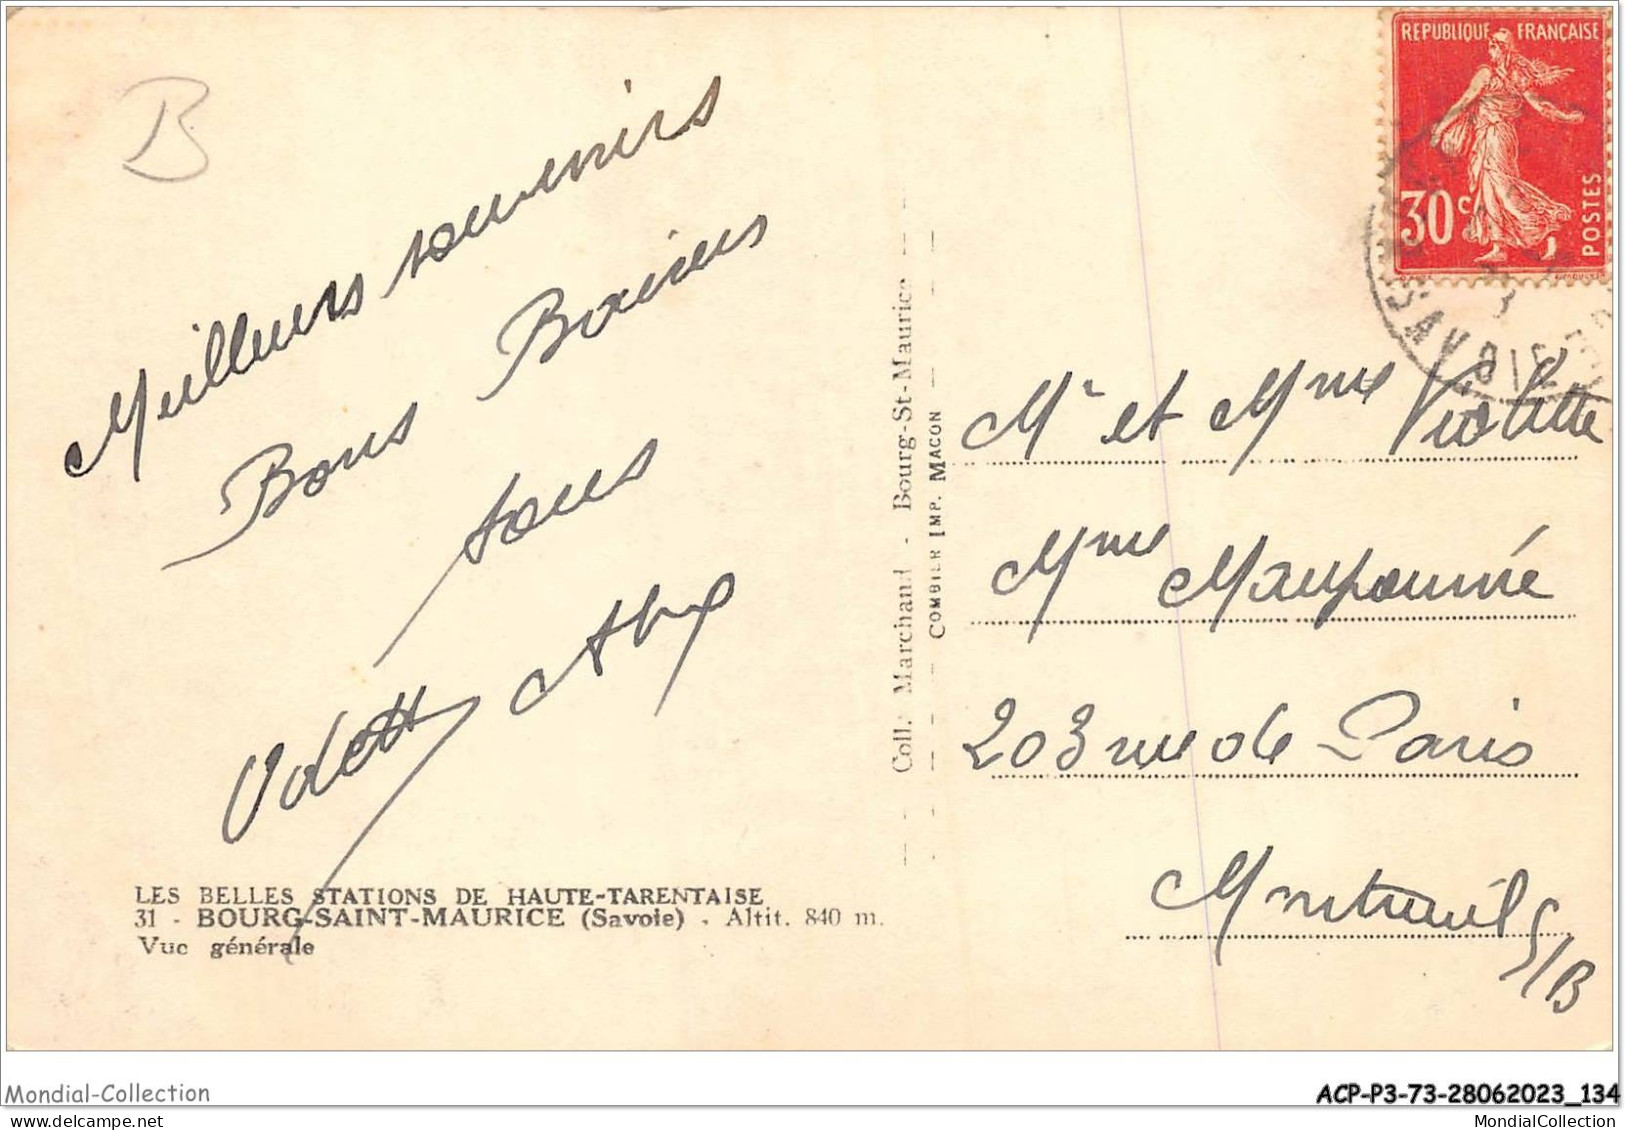 B
Meilleurs souvenirs
Bons Baisers
tous
Odette
LES BELLES STATIONS DE HAUTE-TARENTAISE
31 - BOURG-SAINT-MAURICE (Savoie) - Altit. 840 m.
Vue générale
Coll. Marchand - Bourg-St-Maurice
COMBIER IMP. MACON
REPUBLIQUE FRANÇAISE
30c
POSTES
SAVOIE
Mr et Mme Violette
Mme Maupoumé
203 rue de Paris
Montreuil S/B
Mondial-Collection
ACP-P3-73-28062023_134
MondialCollection